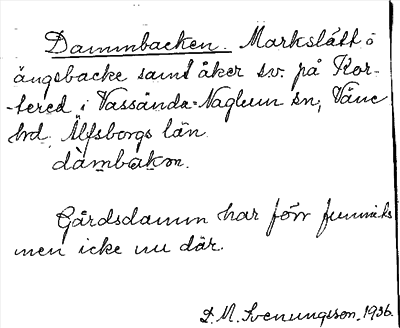 Dammbacken. Markslått o
ängsbacke samt åker sv. på Kor-
-tered i Vassända-Naglum sn, Väne
hd. Älfsborgs län.
dàmbakən.
Gårdsdamm har förr funnits
men icke nu där.
D. M. Svenungsson, 1936.